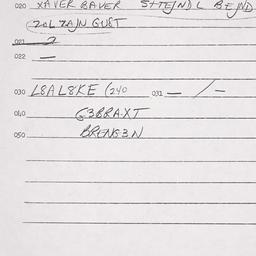 020 XAVER BAVER STTEJND L BEJND
ZOLZAJN GUST
021 2
022 —
030 L8AL8KE (240 031 — / —
040 G3BRAXT
050 BRENS3N